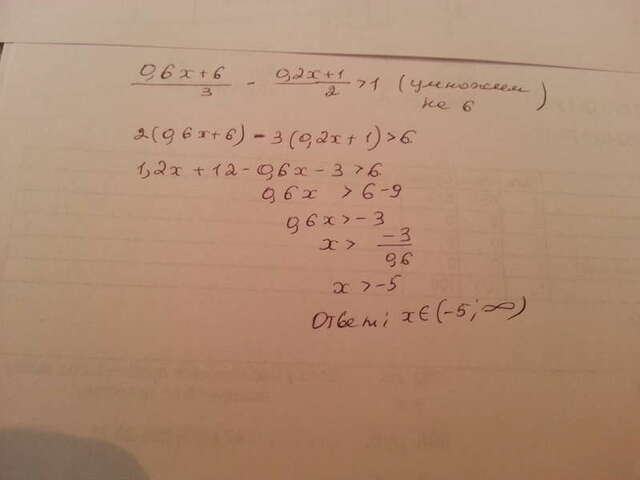 (0,6x+6)/3 - (0,2x+1)/2 >1 (умножим
на 6)
2(0,6x+6) - 3(0,2x+1)>6
1,2x + 12 - 0,6x - 3 >6
0,6x > 6-9
0,6x > -3
x > -3/0,6
x > -5
Ответ: x∈(-5; ∞)